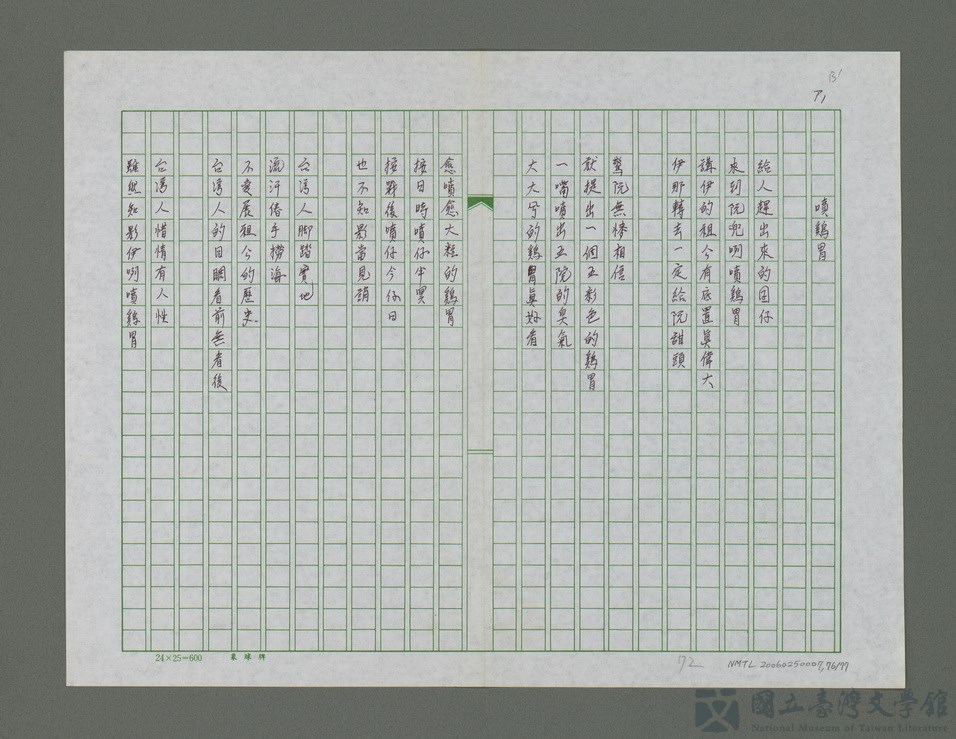 B'
7,
噴鷄胃
給人趕出來的囝仔
來到阮兜咧噴鷄胃
講伊的祖公有底置真偉大
伊那轉去一定給阮甜頭
驚阮無慘相信
就提出一個五彩色的鷄胃
一嘴噴出五院的臭氣
大大兮的鷄胃真好看
愈噴愈大粒的鷄胃
按日時噴仔半暝
按戰後噴仔今仔日
也不知影當見誚
台湾人脚踏實地
流汗借手撈海
不愛展祖公的歷史
台湾人的目睭看前無看後
台湾人惜情有人性
雖然知影伊咧噴鷄胃
24×25=600
72
NMTL 20060250007,76/77
國立臺灣文學館
National Museum of Taiwan Literature